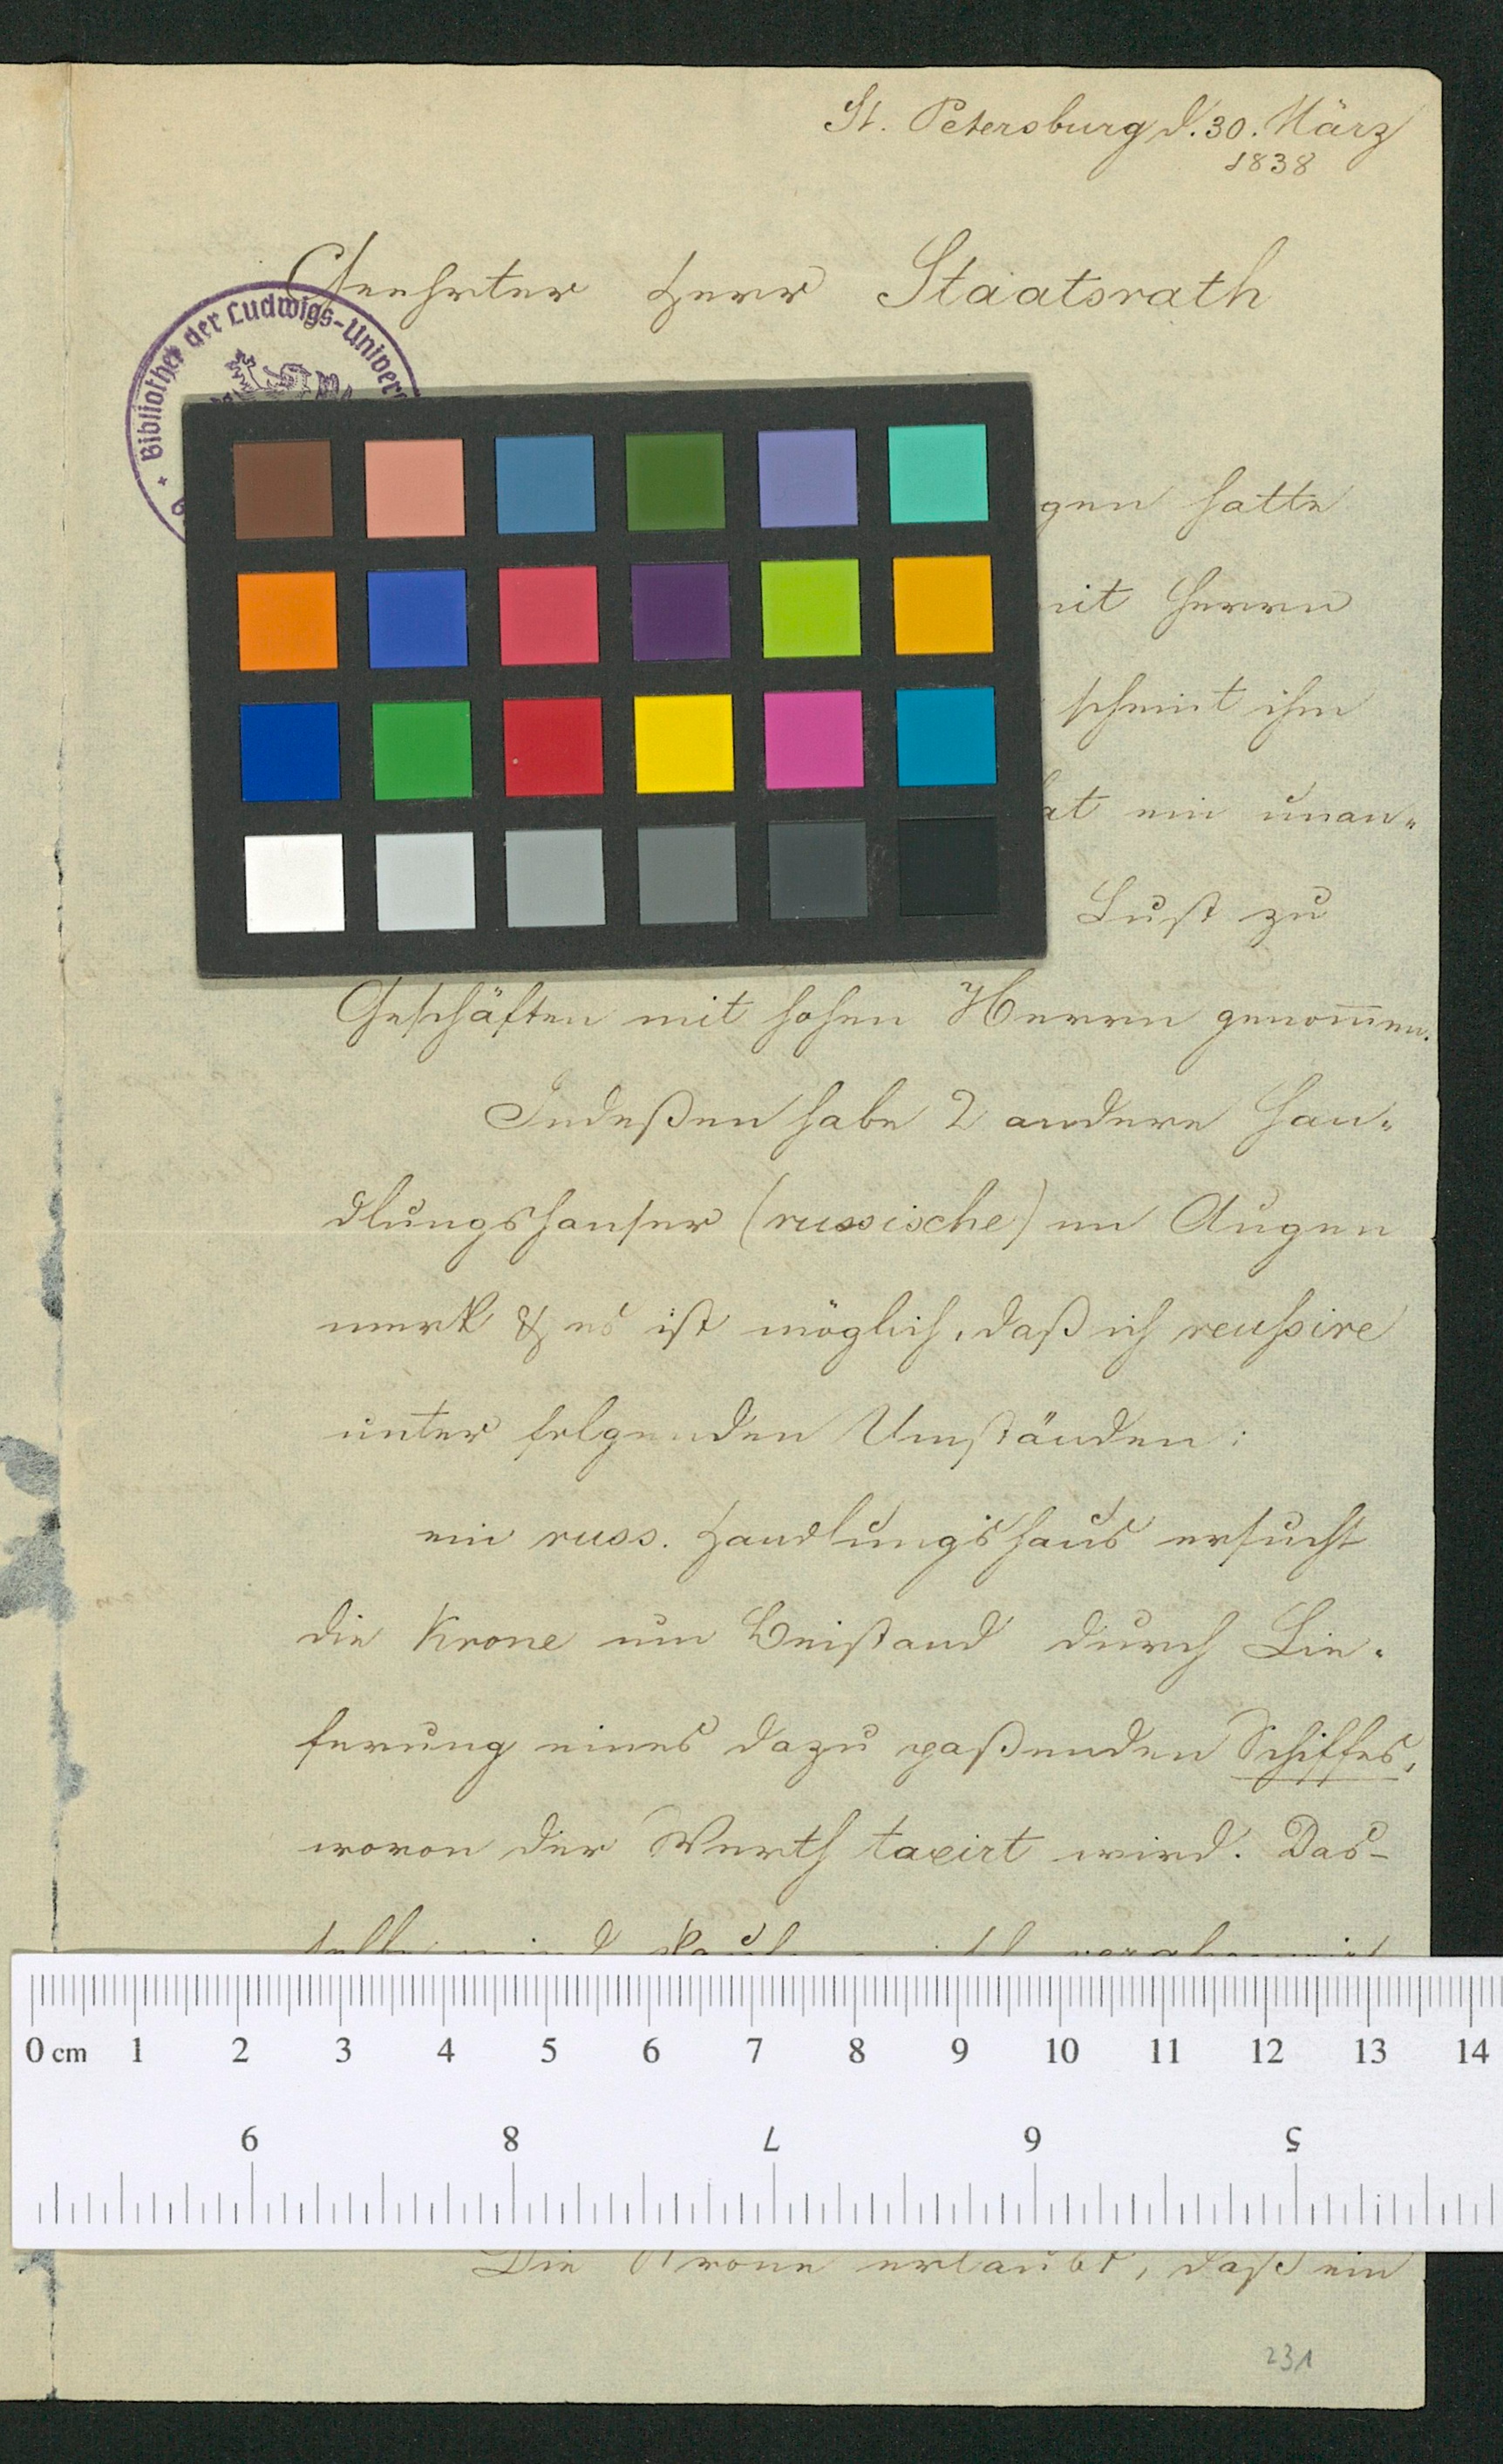 St. Petersburg d. 30. März
1838
Geehrter Herr Staatsrath
Bibliothek der Ludwigs-Univers
gen hatte
mit Herrn
scheint ihm
hat ein unan„
Lust zu
Geschäften mit hohen Herrn genom̅en.
Indeßen habe 2 andere Han„
dlungshauser (russische) im Augen
merk & es ist möglich, daß ich reußire
unter folgenden Umständen:
ein russ. Handlungshaus ersucht
die Krone um Beistand durch Lie„
ferung eines dazu paßenden Schiffes,
wovon der Werth taxirt wird. Das-
selbe wird
0 cm 1 2 3 4 5 6 7 8 9 10 11 12 13 14
9 8 7 6 5
Die Krone erlaubt, daß ein
231